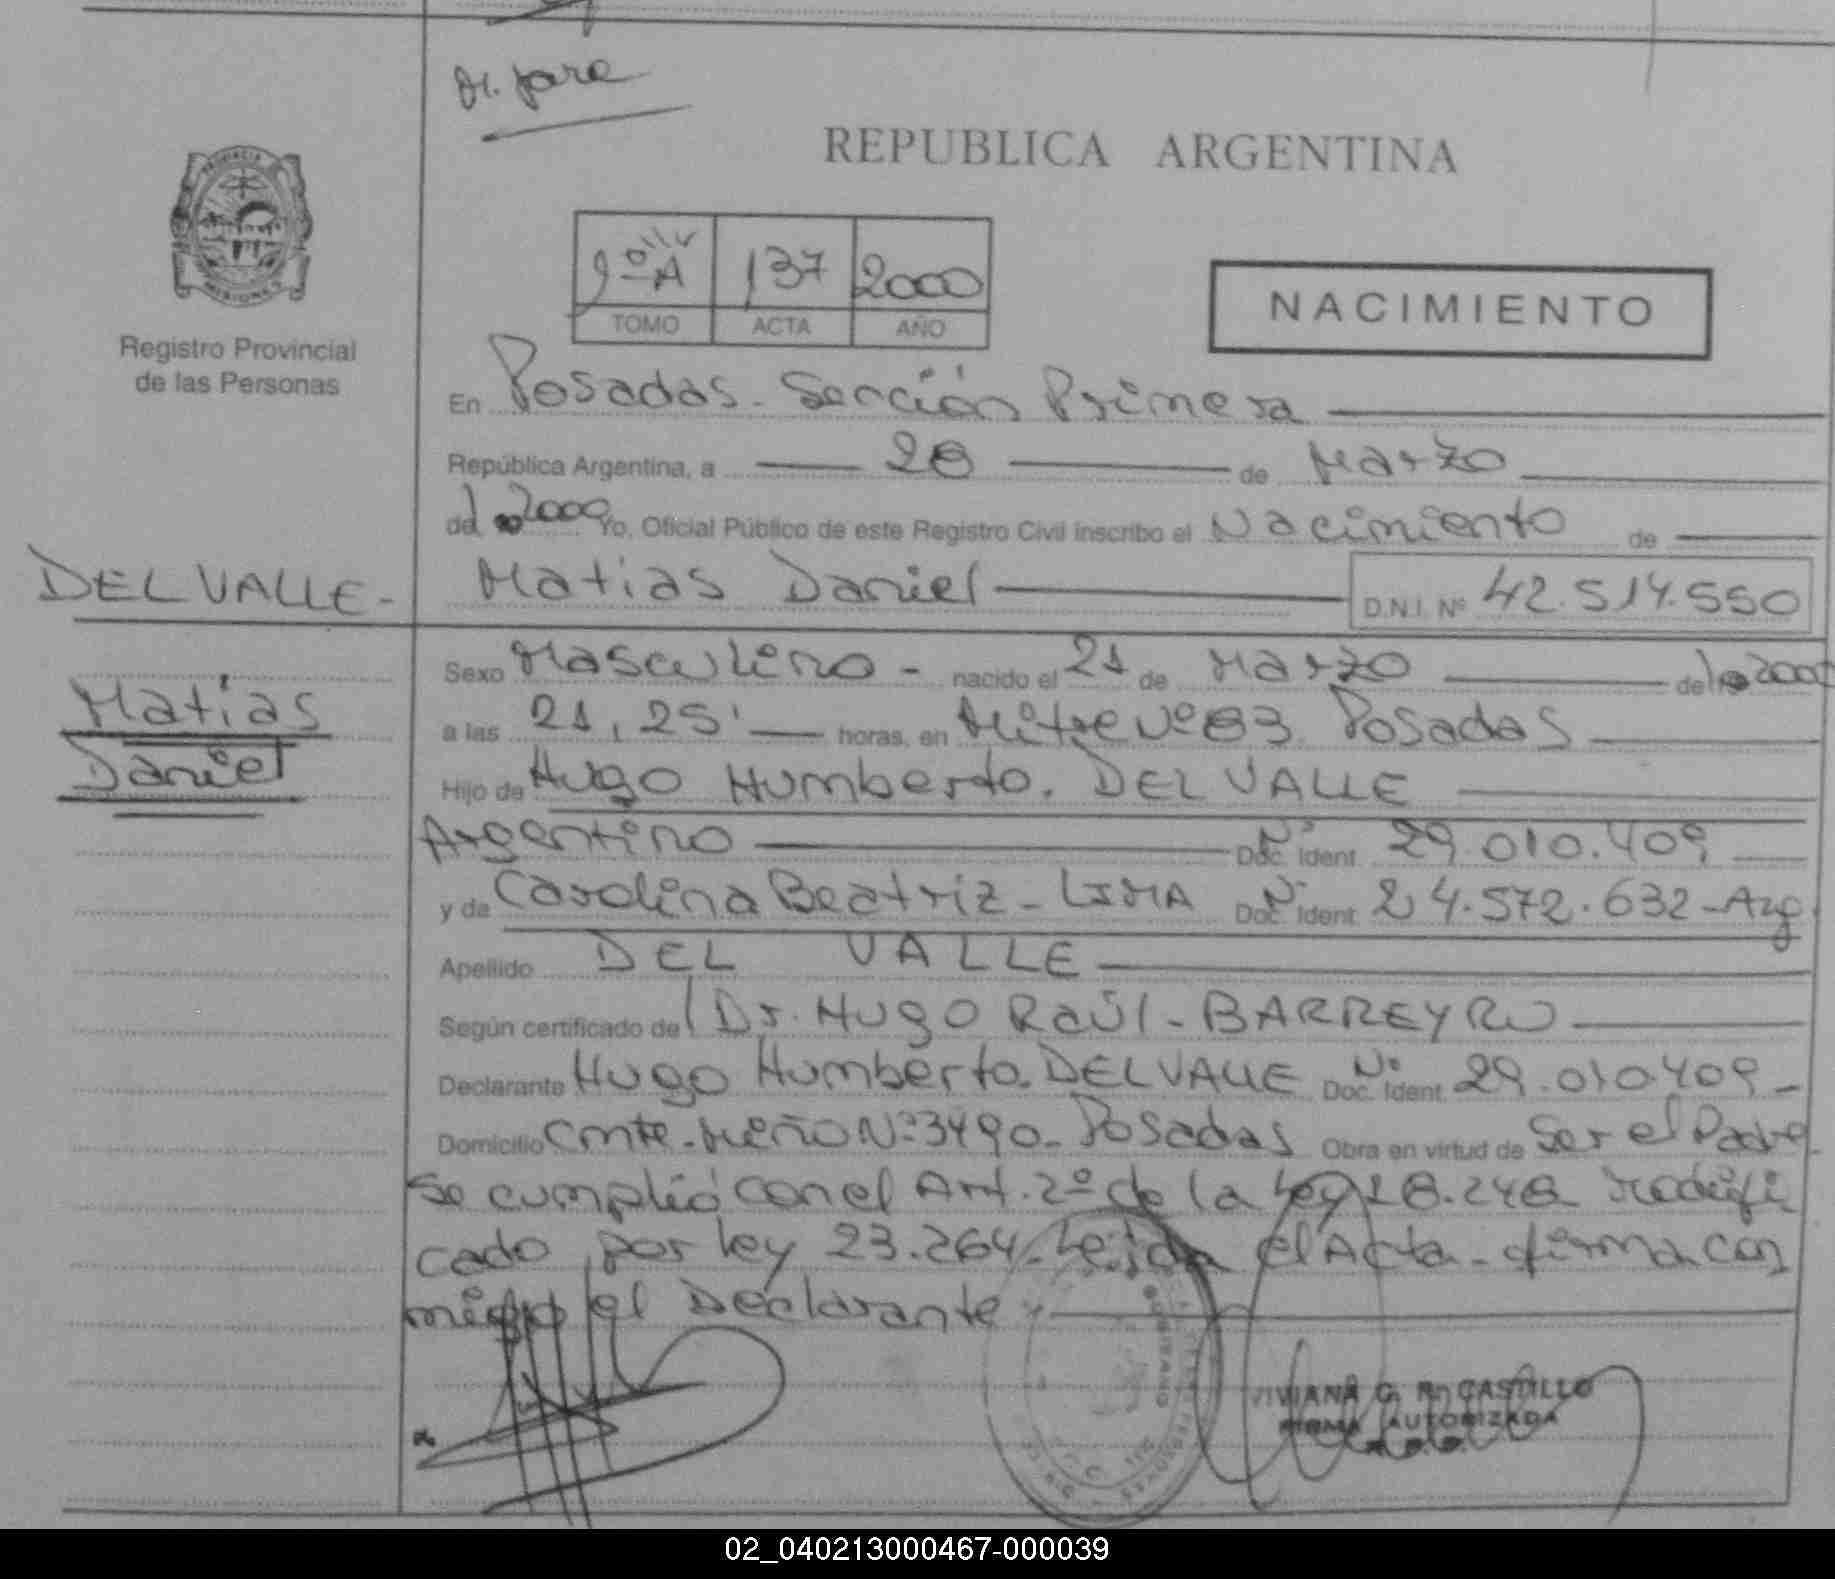 H. Jara
REPUBLICA ARGENTINA
PROVINCIA
MISIONES
Registro Provincial
de las Personas
9º A 137 2000
TOMO ACTA AÑO
NACIMIENTO
En Posadas - Sección Primera
República Argentina, a 28 de Marzo
del 2000 Yo, Oficial Público de este Registro Civil inscribo el Nacimiento de
DEL VALLE - Matias Daniel D.N.I. Nº 42.514.550
Matías
Daniel
Sexo Masculino - nacido el 21 de Marzo del 2000
a las 21,25' horas, en Mitre Nº 83 Posadas
Hijo de Hugo Humberto. DEL VALLE
Argentino Nº Doc. Ident. 29.010.409
y de Carolina Beatriz - LIMA Nº Doc. Ident. 24.572.632 - Arg
Apellido DEL VALLE
Según certificado del Dr. HUGO RaÚl - BARREYRO
Declarante Hugo Humberto. DEL VALLE Nº Doc. Ident. 29.010.409 -
Domicilio Cmte. Miño Nº 3490 - Posadas Obra en virtud de Ser el Padre
Se cumplió con el Art. 2º de la Ley 18.248 Modifi
cado por ley 23.264. Leída el Acta - firma con
migo el Declarante
VIVIANA G. R. CASTILLO
FIRMA AUTORIZADA
02_040213000467-000039